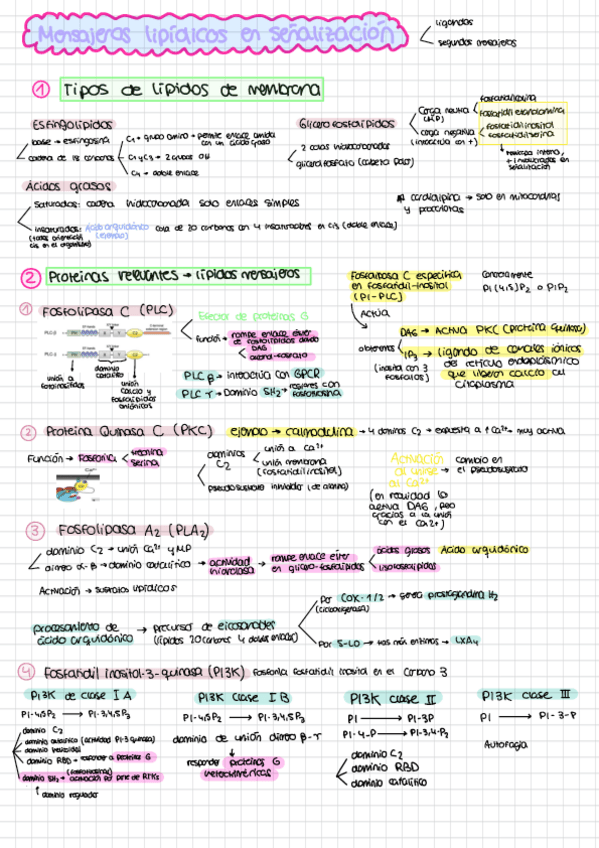 Mensajeros lipídicos en señalización
ligandos
segundos mensajeros
1 Tipos de lípidos de membrana
Esfingolípidos
base → esfingosina
cadena de 18 carbonos
C1 → grupo amino → permite enlace amida
con un ácido graso
C1 y C3 → 2 grupos OH
C4 → doble enlace
Glicerofosfolípidos
2 colas hidrocarbonadas
glicerol fosfato (cabeza polar)
Carga neutra
carga negativa
(interactúa con +)
fosfatidilcolina
fosfatidil etanolamina
fosfatidil inositol
fosfatidil serina
membrana interna
+ involucrados en
señalización
Ácidos grasos
Saturados: cadena hidrocarbonada solo enlaces simples
insaturados: Ácido araquidónico cola de 20 carbonos con 4 insaturaciones en cis (doble enlace)
(todos orientación (ejemplo)
cis en el organismo)
* cardiolipina → solo en mitocondrias
y procariotas
2 Proteínas relevantes → lípidos mensajeros
1 Fosfolipasa C (PLC)
PLC-β
PLC-δ
unión a
fosfoinosítidos
dominio
catalítico
unión
calcio y
fosfolípidos
aniónicos
Efector de proteínas G
función → rompe enlace éster
de fosfolípidos dando
DAG
alcohol-fosfato
PLC β → interactúa con GPCR
PLC γ → Dominio SH2 → regiones con
fosfotirosina
Fosfolipasa C específica
en fosfatidil-inositol
(PI-PLC)
concretamente
PI(4,5)P2 o PIP2
Actúa
obtenemos
DAG → Activa PKC (proteína quinasa)
IP3 → ligando de canales iónicos
(inositol con 3
fosfatos)
del retículo endoplásmico
que liberan calcio al
citoplasma
2 Proteína Quinasa C (PKC) ejemplo → calmodulina → 4 dominios C2 → expuesta a ↑ Ca2+ → muy activa
Función → fosforila
treonina
serina
Ca2+
dominios
C2
unión a Ca2+
unión membrana
(fosfatidilinositol)
pseudosustrato inhibidor (de alanina)
Activación
al unirse
al Ca2+
cambio en
→ el pseudosustrato
(en realidad lo
activa DAG, pero
gracias a la unión
con el Ca2+)
3 Fosfolipasa A2 (PLA2)
dominio C2 → unión Ca2+ y MP
dímero α-β → dominio catalítico → actividad
hidrolasa
→ rompe enlace éster
en glicero-fosfolípidos
ácidos grasos Ácido araquidónico
lisofosfolípidos
Activación → sustratos lipídicos
procesamiento de
ácido araquidónico
→ precursor de eicosanoides
(lípidos 20 carbonos 4 dobles enlaces)
Por COX-1/2 → genera prostaglandina H2
(ciclooxigenasa)
Por 5-LO → más enzimas → LXA4
4 Fosfatidil inositol-3-quinasa (PI3K) fosforila fosfatidil inositol en el carbono 3
PI3K de clase I A
PI-4,5P2 → PI-3,4,5P3
dominio C2
dominio catalítico (actividad PI-3 quinasa)
dominio helicoidal
dominio RBD → responder a proteínas G
(fosfotirosinas)
dominio SH2 → activación por parte de RTKs
↑ dominio regulador
PI3K clase I B
PI-4,5P2 → PI-3,4,5P3
dominio de unión dímero β-γ
responder proteínas G
heterotriméricas
PI3K clase II
PI → PI-3P
PI-4-P → PI-3,4-P2
dominio C2
dominio RBD
dominio catalítico
PI3K clase III
PI → PI-3-P
Autofagia